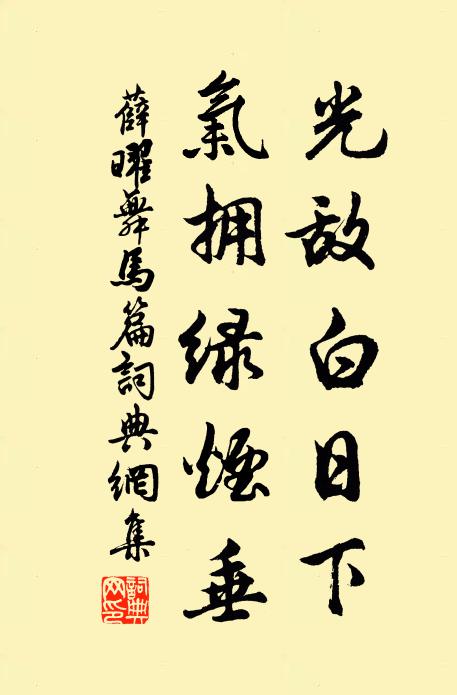 光敌白日下
氣拥绿煙垂
薛曜舞馬篇詞典網集
詞典网印